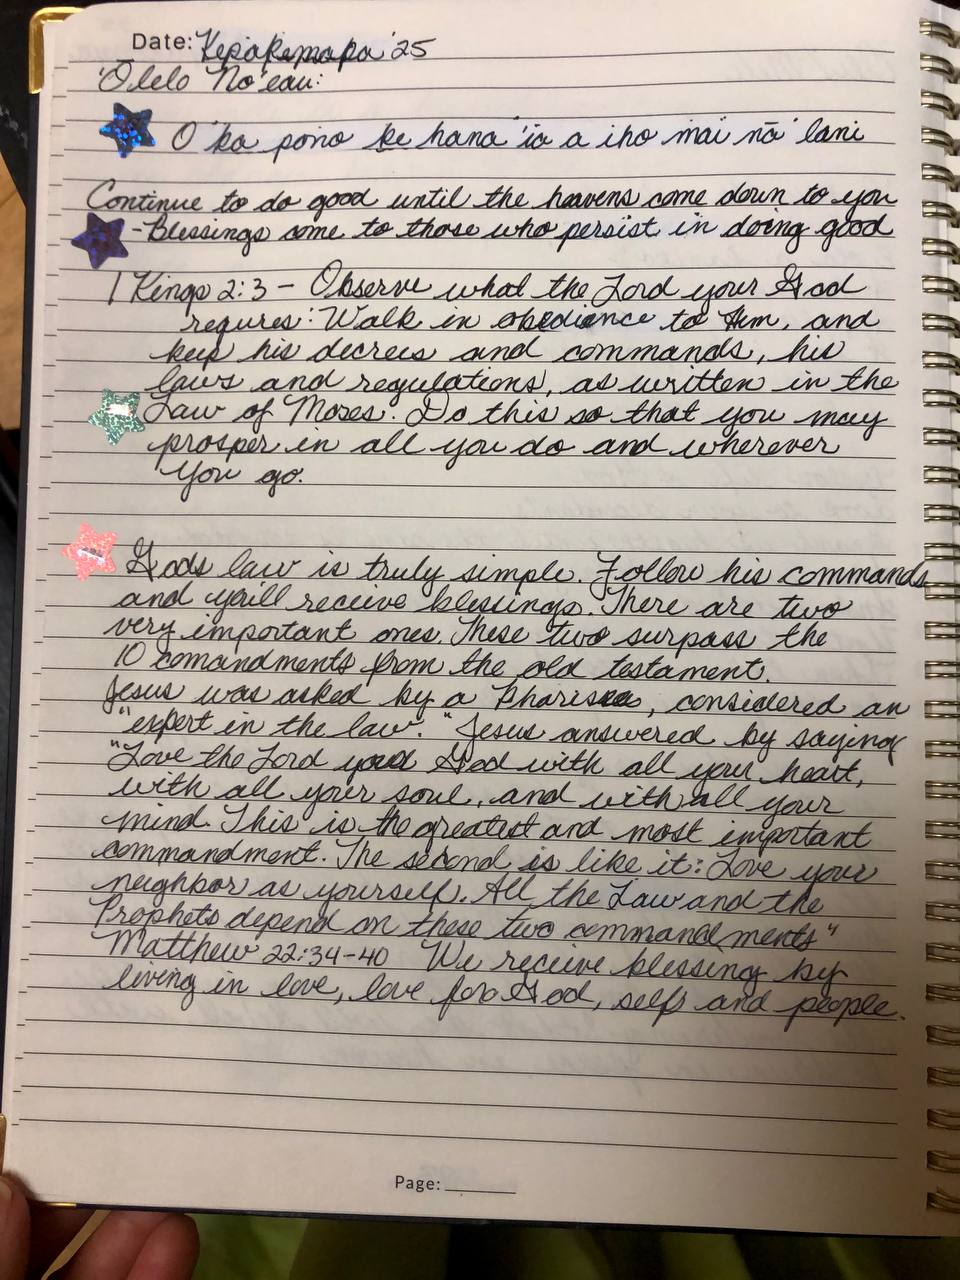 Date: Kepakemapa '25
'Ōlelo No'eau:
O ka pono ke hana 'ia a iho mai nā lani
Continue to do good until the heavens come down to you
-Blessings come to those who persist in doing good
1 Kings 2:3 - Observe what the Lord your God
requres: Walk in obedience to Him, and
keep his decrees and commands, his
laws and regulations, as written in the
Law of Moses. Do this so that you may
prosper in all you do and wherever
you go.
Gods law is truly simple. Follow his commands
and you'll receive blessings. There are two
very important ones. These two surpass the
10 comandments from the old testament.
Jesus was asked by a Pharisee, considered an
"expert in the law." Jesus answered by saying
"Love the Lord your God with all your heart,
with all your soul, and with all your
mind. This is the greatest and most important
commandment. The second is like it: Love your
neighbor as yourself. All the Law and the
Prophets depend on these two commandments"
Matthew 22:34-40 We receive blessing by
living in love, love for God, self and people.
Page: